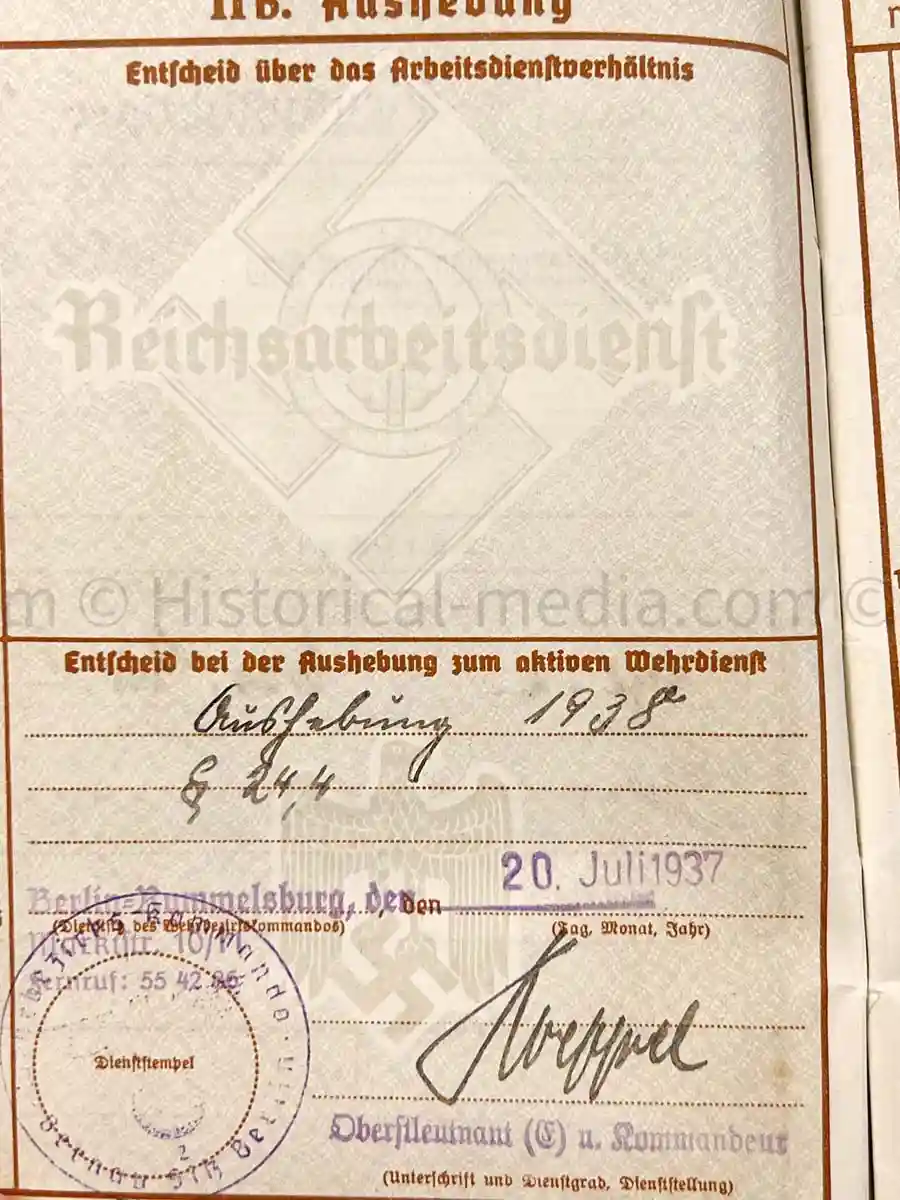 IIB. Aushebung
Entscheid über das Arbeitsdienstverhältnis
Reichsarbeitsdienst
© Historical-media.com ©
Entscheid bei der Aushebung zum aktiven Wehrdienst
Aushebung 1938
§ 24,4
20. Juli 1937
Berlin-Rummelsburg, den
den
(Dienstsitz des Wehrbezirkskommandos)
(Tag, Monat, Jahr)
Marktstr. 10/
Fernruf: 55 42 86
Dienststempel
2
Oberstleutnant (E) u. Kommandeur
(Unterschrift und Dienstgrad, Dienststellung)